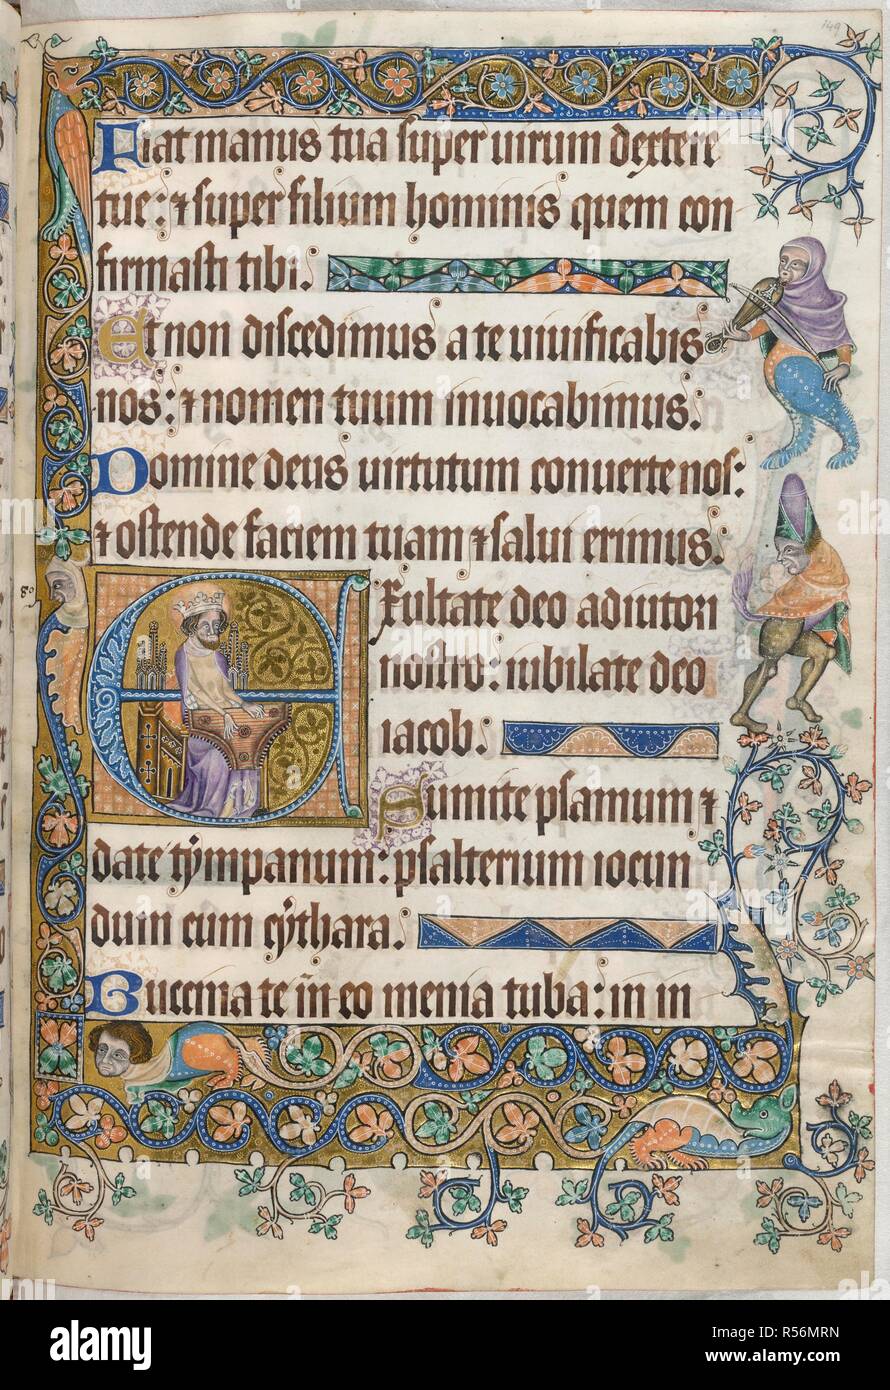 149
Fiat manus tua super uirum dextere
tue: ⁊ super filium hominis quem con
firmasti tibi.
Et non discedimus a te uiuificabis
nos: ⁊ nomen tuum inuocabimus.
Domine deus uirtutum conuerte nos:
⁊ ostende faciem tuam ⁊ salui erimus.
80
Exultate deo adiutori
nostro: iubilate deo
iacob.
Sumite psalmum ⁊
date tympanum: psalterium iocun
dum cum cythara.
Buccinate in neomenia tuba: in in
alamy
Image ID: R56MRN
www.alamy.com